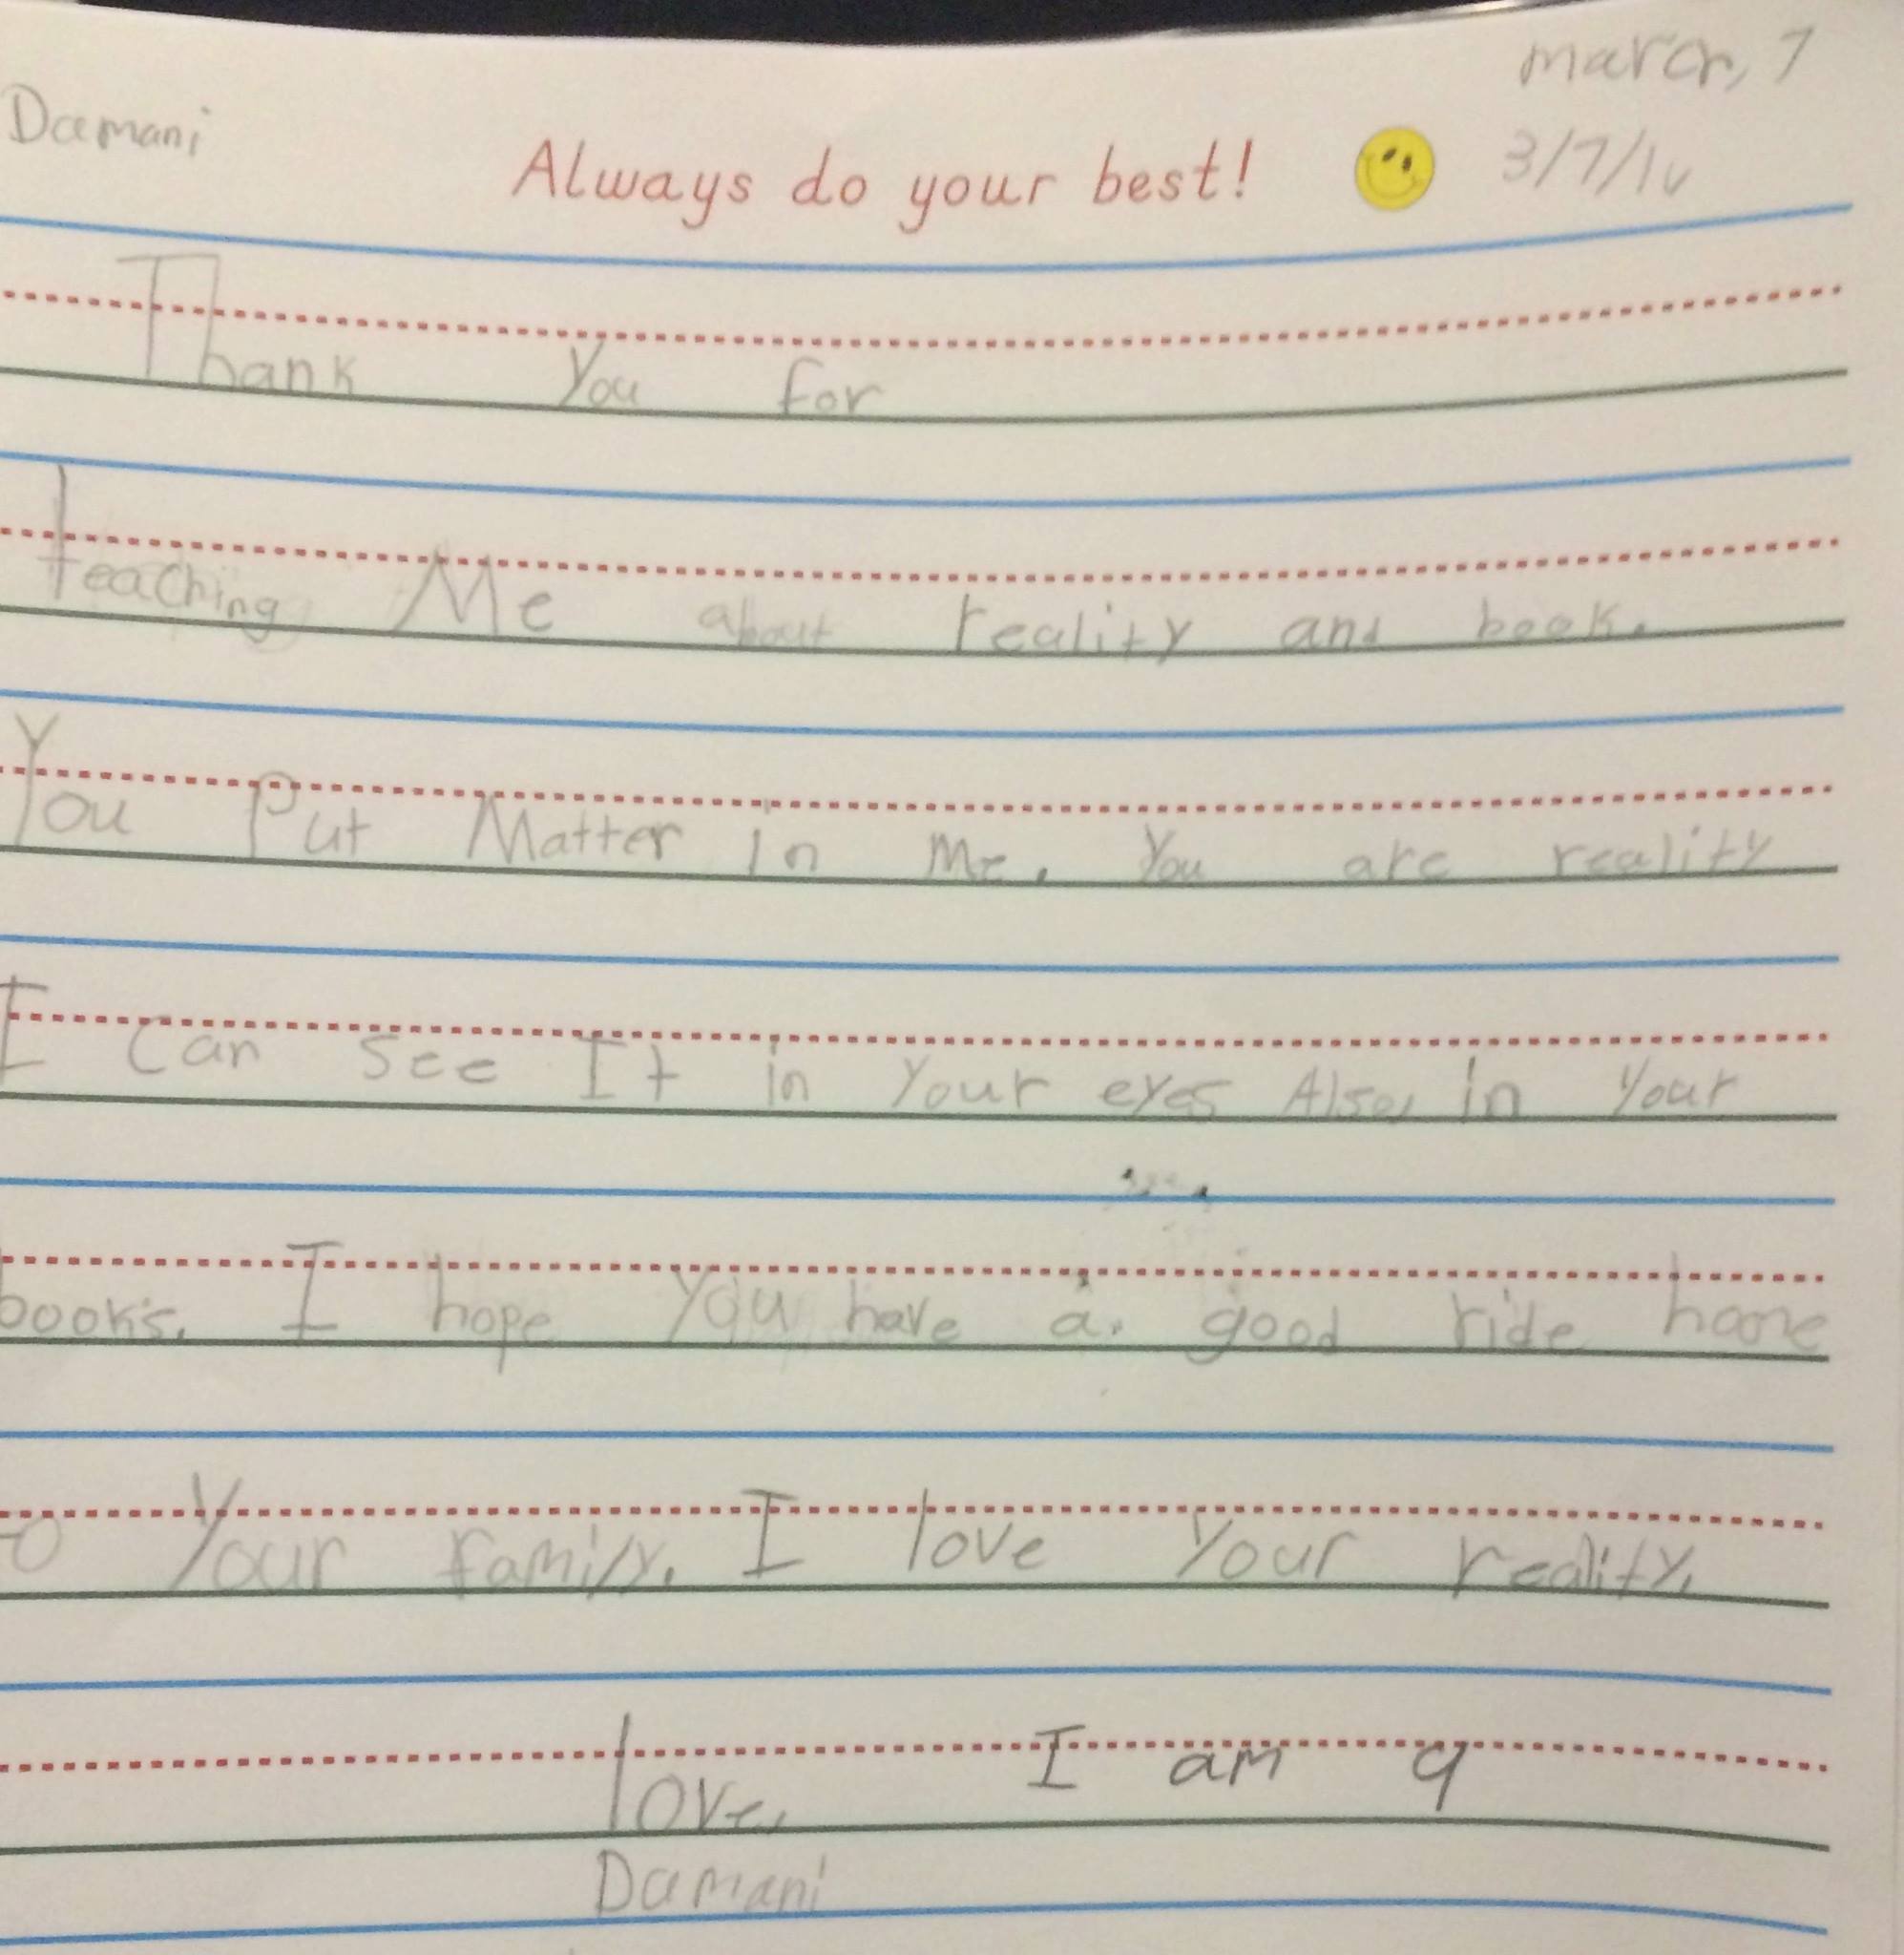 march, 7
Damani
Always do your best!
3/7/16
Thank you for
teaching Me about reality and book.
You Put Matter in Me. You are reality
I Can see It in Your eyes Also, in Your
books. I hope You have a. good ride home
to Your family. I love Your reality.
love, I am 9
Damani